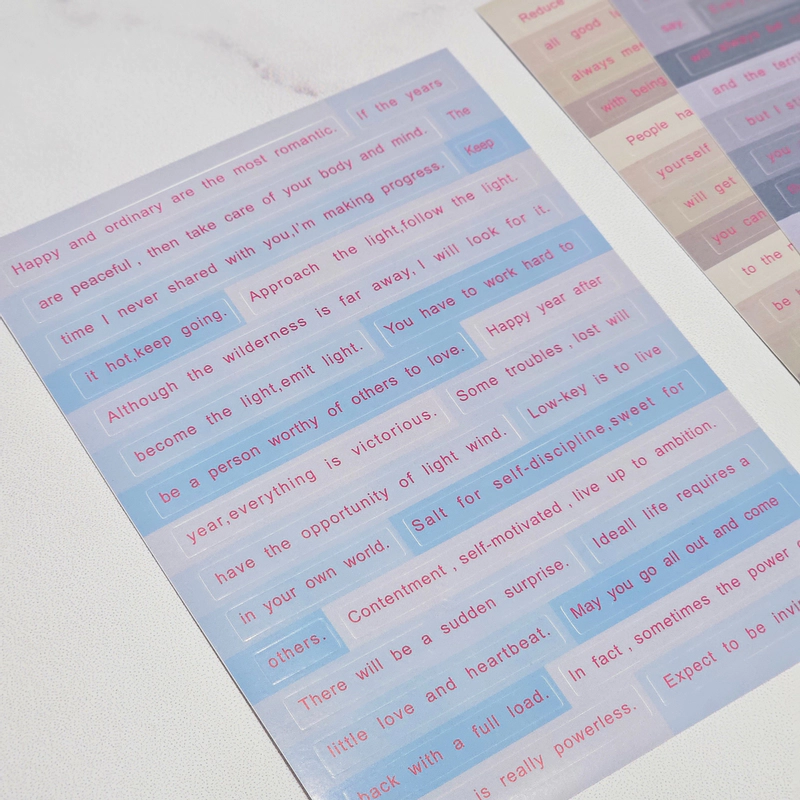 Happy and ordinary are the most romantic. If the years
are peaceful , then take care of your body and mind. The
time I never shared with you,I'm making progress. Keep
it hot,keep going. Approach the light,follow the light.
Although the wilderness is far away, I will look for it.
become the light,emit light. You have to work hard to
be a person worthy of others to love. Happy year after
year,everything is victorious. Some troubles , lost will
have the opportunity of light wind. Low-key is to live
in your own world. Salt for self-discipline,sweet for
others. Contentment , self-motivated , live up to ambition.
There will be a sudden surprise. Ideall life requires a
little love and heartbeat. May you go all out and come
back with a full load. In fact , sometimes the power
is really powerless. Expect to be
Reduce
all good
always
with being
People
yourself
will get
you can
to the
be
say
and the
but I
you